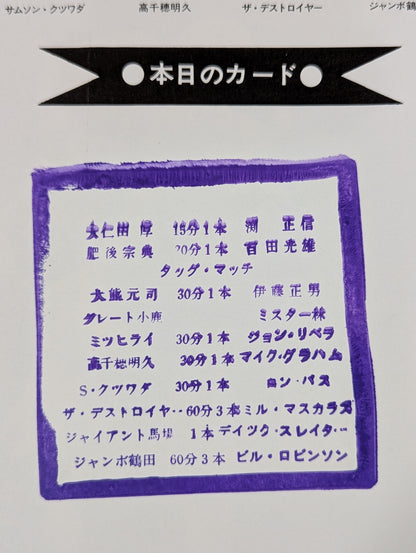 サムソン・クツワダ 高千穂明久 ザ・デストロイヤー ジャンボ鶴
●本日のカード●
大仁田 厚 15分1本 渕 正信
肥後宗典 20分1本 百田光雄
タッグ・マッチ
大熊元司 30分1本 伊藤正男
グレート小鹿 ミスター林
ミツヒライ 30分1本 ジョン・リベラ
高千穂明久 30分1本 マイク・グラハム
S・クツワダ 30分1本 ロン・バス
ザ・デストロイヤ‥60分3本ミル・マスカラス
ジャイアント馬場 1本デイック・スレイタ‥
ジャンボ鶴田 60分3本 ビル・ロビンソン